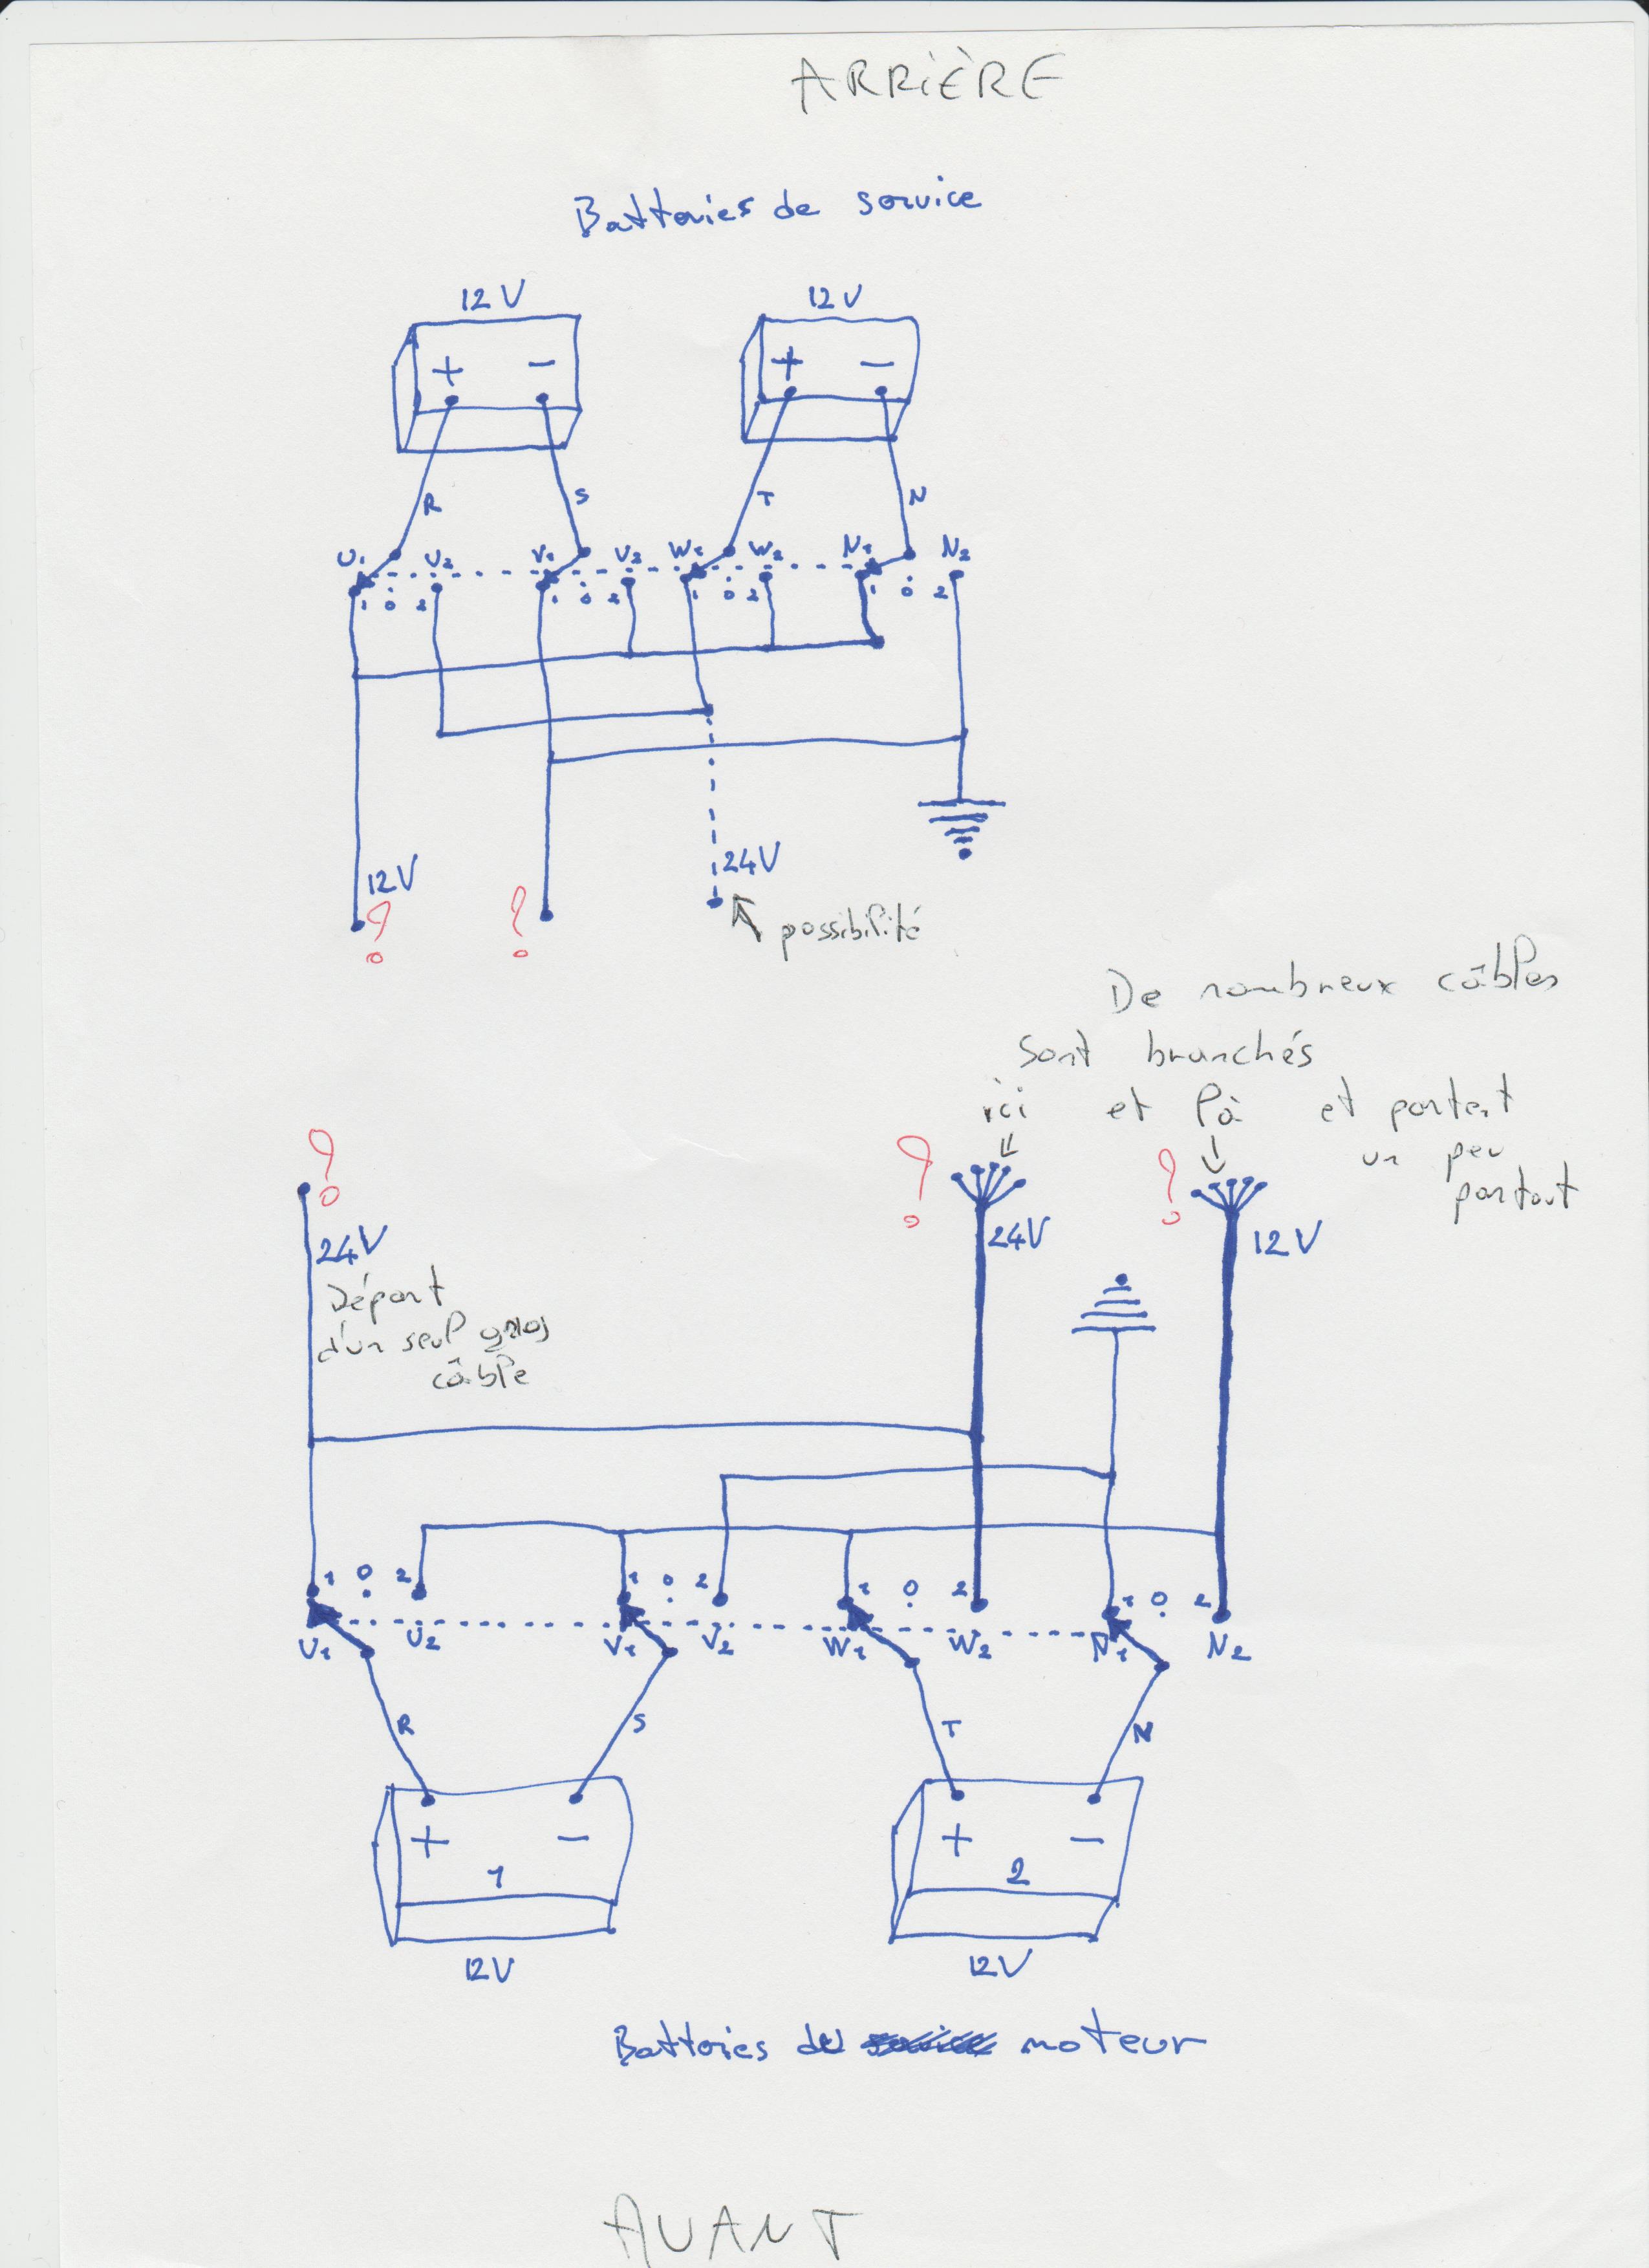 ARRIÈRE
Batteries de service
12V 12V
+ - + -
R S T N
U1 U2 V1 V2 W1 W2 N1 N2
1 0 2 1 0 2 1 0 2 1 0 2
12V 24V
? ? possibilité
De nombreux câbles
sont branchés
ici et là et partent
un peu
partout
? ? ?
24V 24V 12V
Départ
d'un seul gros
câble
1 0 2 1 0 2 1 0 2 1 0 2
U1 U2 V1 V2 W1 W2 N1 N2
R S T N
+ - + -
1 2
12V 12V
Batteries de moteur
AVANT